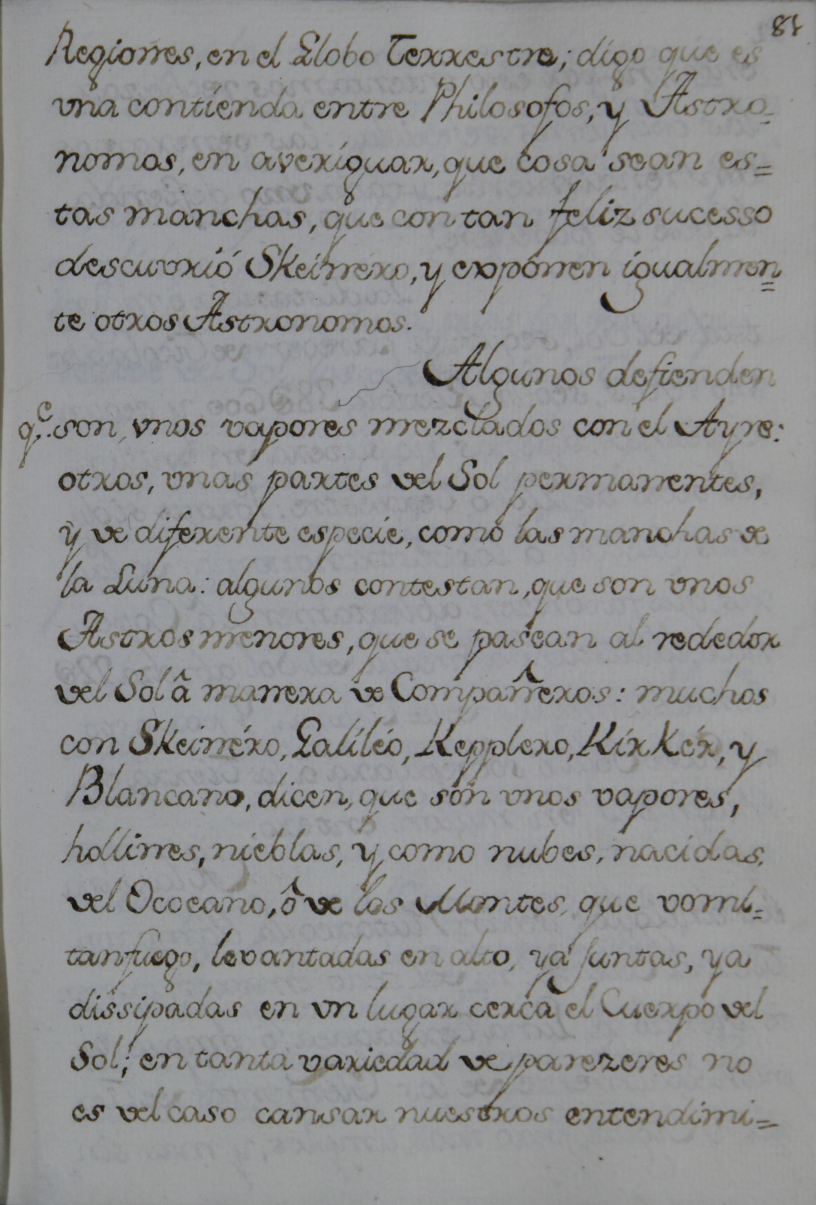 81
Regiones, en el Globo Terrestre; digo que es
vna contienda entre Philosofos, y Astro-
nomos, en averiguar, que cosa sean es=
tas manchas, que con tan feliz sucesso
descuvrió Skeinéro, y exponen igualmen=
te otros Astronomos.
Algunos defienden
q.e son, vnos vapores mezclados con el Ayre:
otros, vnas partes del Sol permanentes,
y de diferente especie, como las manchas de
la Luna: algunos contestan, que son vnos
Astros menores, que se pasean al rededor
del Sol â manera de Compañeros: muchos
con Skeinéro, Galiléo, Kepplero, Kírkér, y
Blancano, dicen, que són vnos vapores,
hollines, nieblas, y como nubes, nacidas,
del Ococano, ô de los Montes, que vomi=
tan fuego, levantadas en alto, ya juntas, ya
dissipadas en vn lugar cerca el Cuerpo del
Sol; en tanta variedad de parezeres no
es del caso cansar nuestros entendimi=